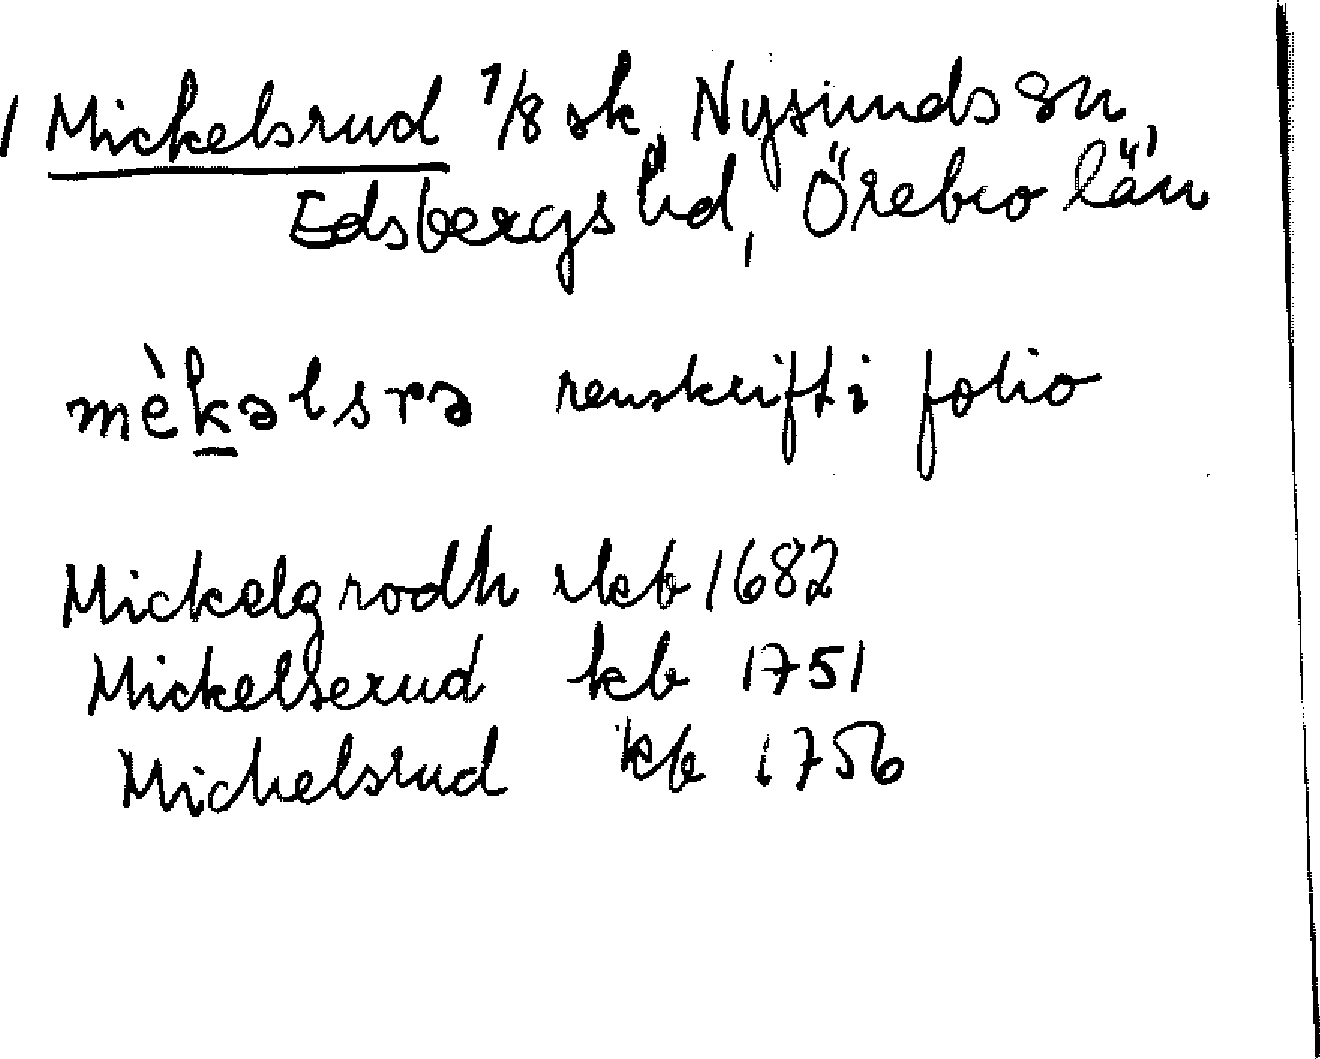 1 Mickelsrud 1/8 sk, Nysunds sn,
Edsbergs hd, Örebro län
mèk̲əlsrə renskrift i folio
Mickelzrodh rkb 1682
Mickelserud kb 1751
Mickelsrud kb 1756